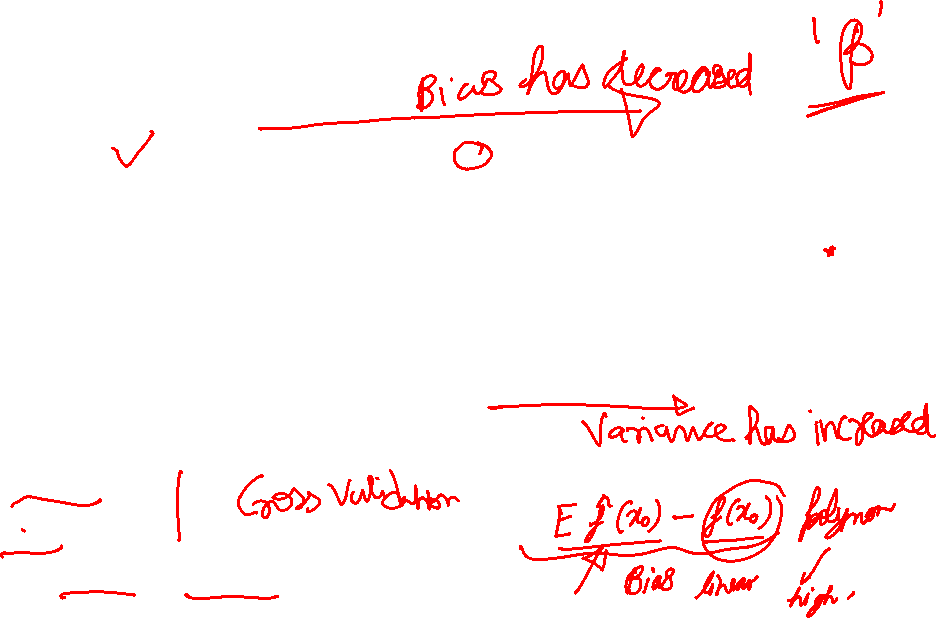 'β'
Bias has decreased
Variance has increased
Cross Validation
E f̂(x₀) - f(x₀) polynom
Bias linear high.